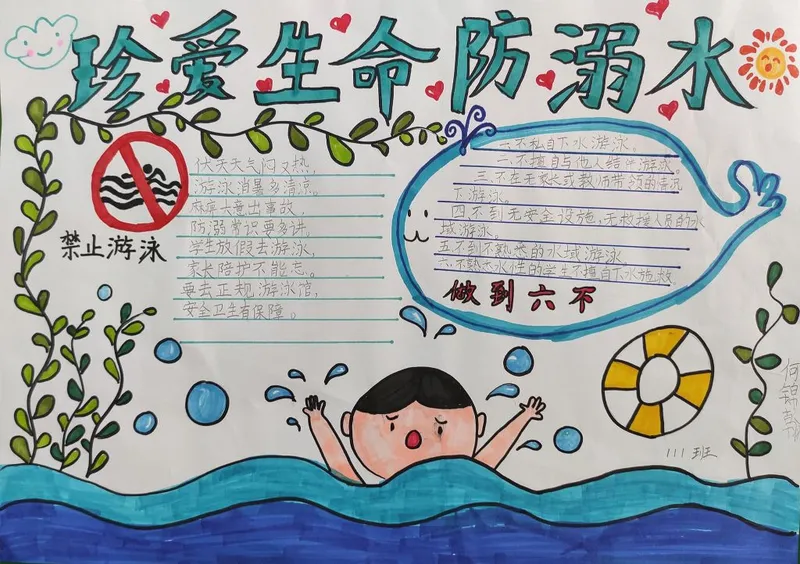 珍爱生命防溺水
伏天天气闷又热,
游泳消暑多清凉。
麻痹大意出事故,
防溺常识要多讲。
学生放假去游泳,
家长陪护不能忘。
要去正规游泳馆,
安全卫生有保障。
禁止游泳
一、不私自下水游泳。
二、不擅自与他人结伴游泳。
三、不在无家长或教师带领的情况
下游泳。
四、不到无安全设施、无救援人员的水
域游泳。
五、不到不熟悉的水域游泳
六、不熟水性的学生不擅自下水施救
做到六不
何锦
111班